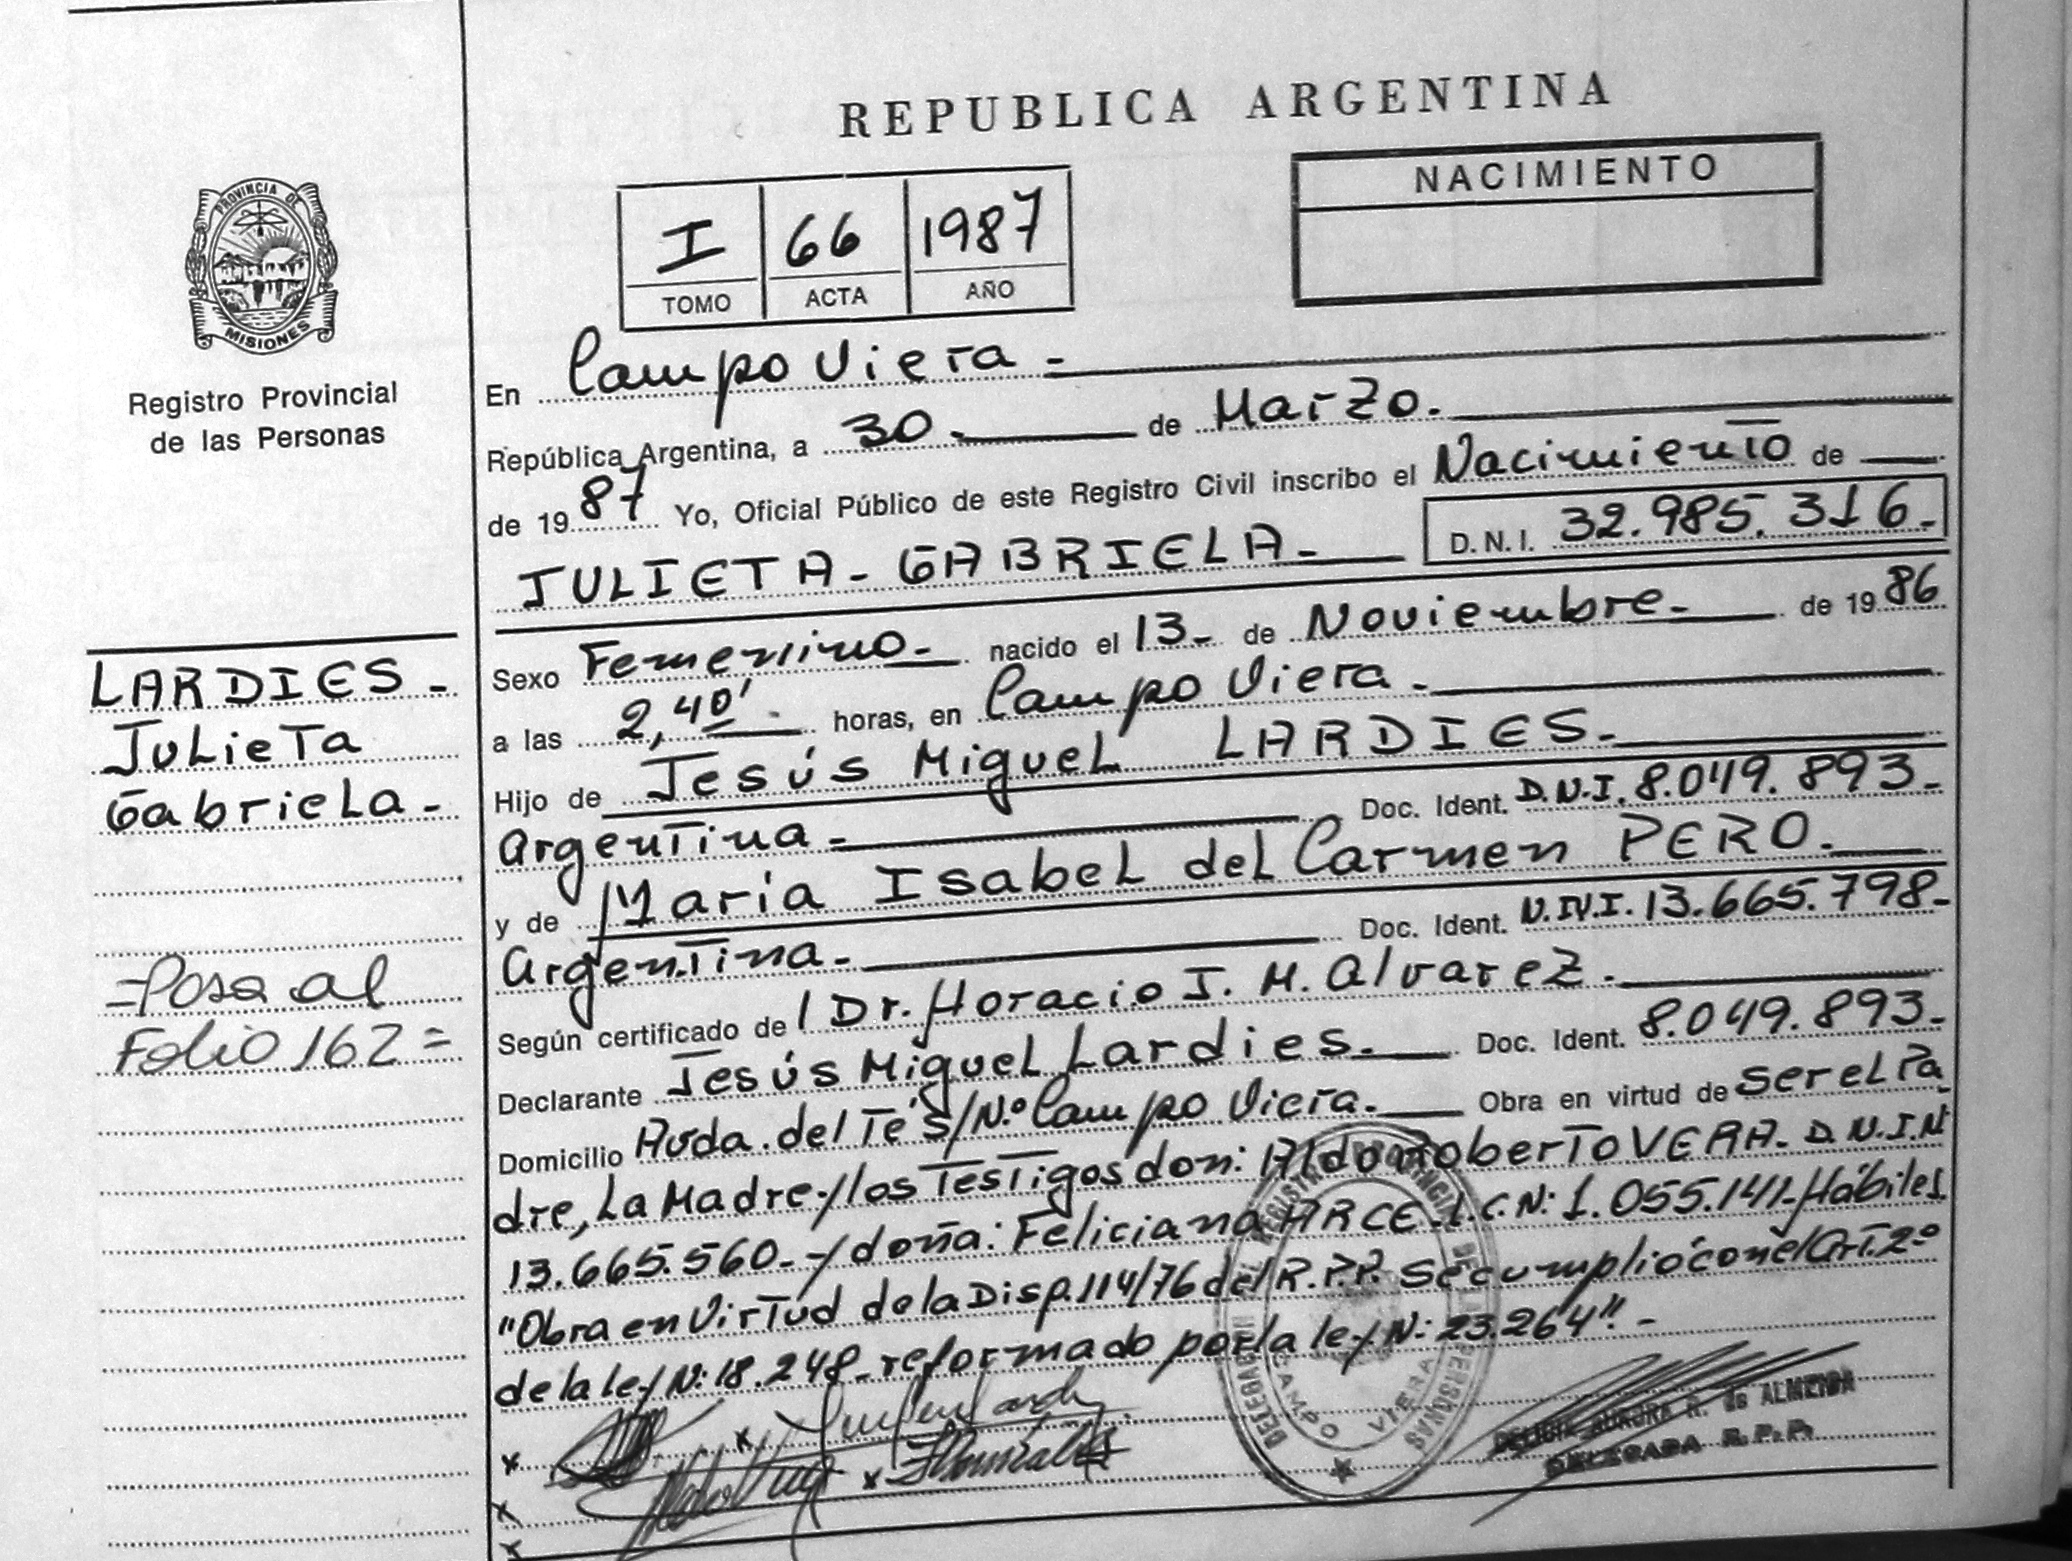 REPUBLICA ARGENTINA
PROVINCIA DE
MISIONES
Registro Provincial
de las Personas
I 66 1987
TOMO ACTA AÑO
NACIMIENTO
En Campo Viera -
República Argentina, a 30.- de Marzo.
de 1987 Yo, Oficial Público de este Registro Civil inscribo el Nacimiento de
JULIETA - GABRIELA - D.N.I. 32.985.316.-
Sexo Femenino.- nacido el 13.- de Noviembre.- de 1986
a las 2,40' horas, en Campo Viera.-
Hijo de Jesús Miguel LARDIES.-
Argentina.- Doc. Ident. D.N.I. 8.049.893.-
y de María Isabel del Carmen PERO.-
Argentina.- Doc. Ident. D.N.I. 13.665.798.-
Según certificado del Dr. Horacio J. M. Alvarez.-
Declarante Jesús Miguel Lardies.- Doc. Ident. 8.049.893.-
Domicilio Avda. del Té s/N.º Campo Viera.- Obra en virtud de ser el Pa
dre, La Madre y los Testigos don: Aldo Roberto VERA.- D.N.I.N
13.665.560.- y doña: Feliciana ARCE.- L.C.N: 1.055.141- Hábiles
"Obra en Virtud de la Disp. 114/76 del R.P.P. Se cumplió con el Art. 2º
de la ley N: 18.248 - reformado por la ley N: 23.264".-
LARDIES -
Julieta
Gabriela -
= Pasa al
Folio 162 =
CAMPO VIERA
DELICIA AURORA R. de ALMEIDA
DELEGADA R.P.P.